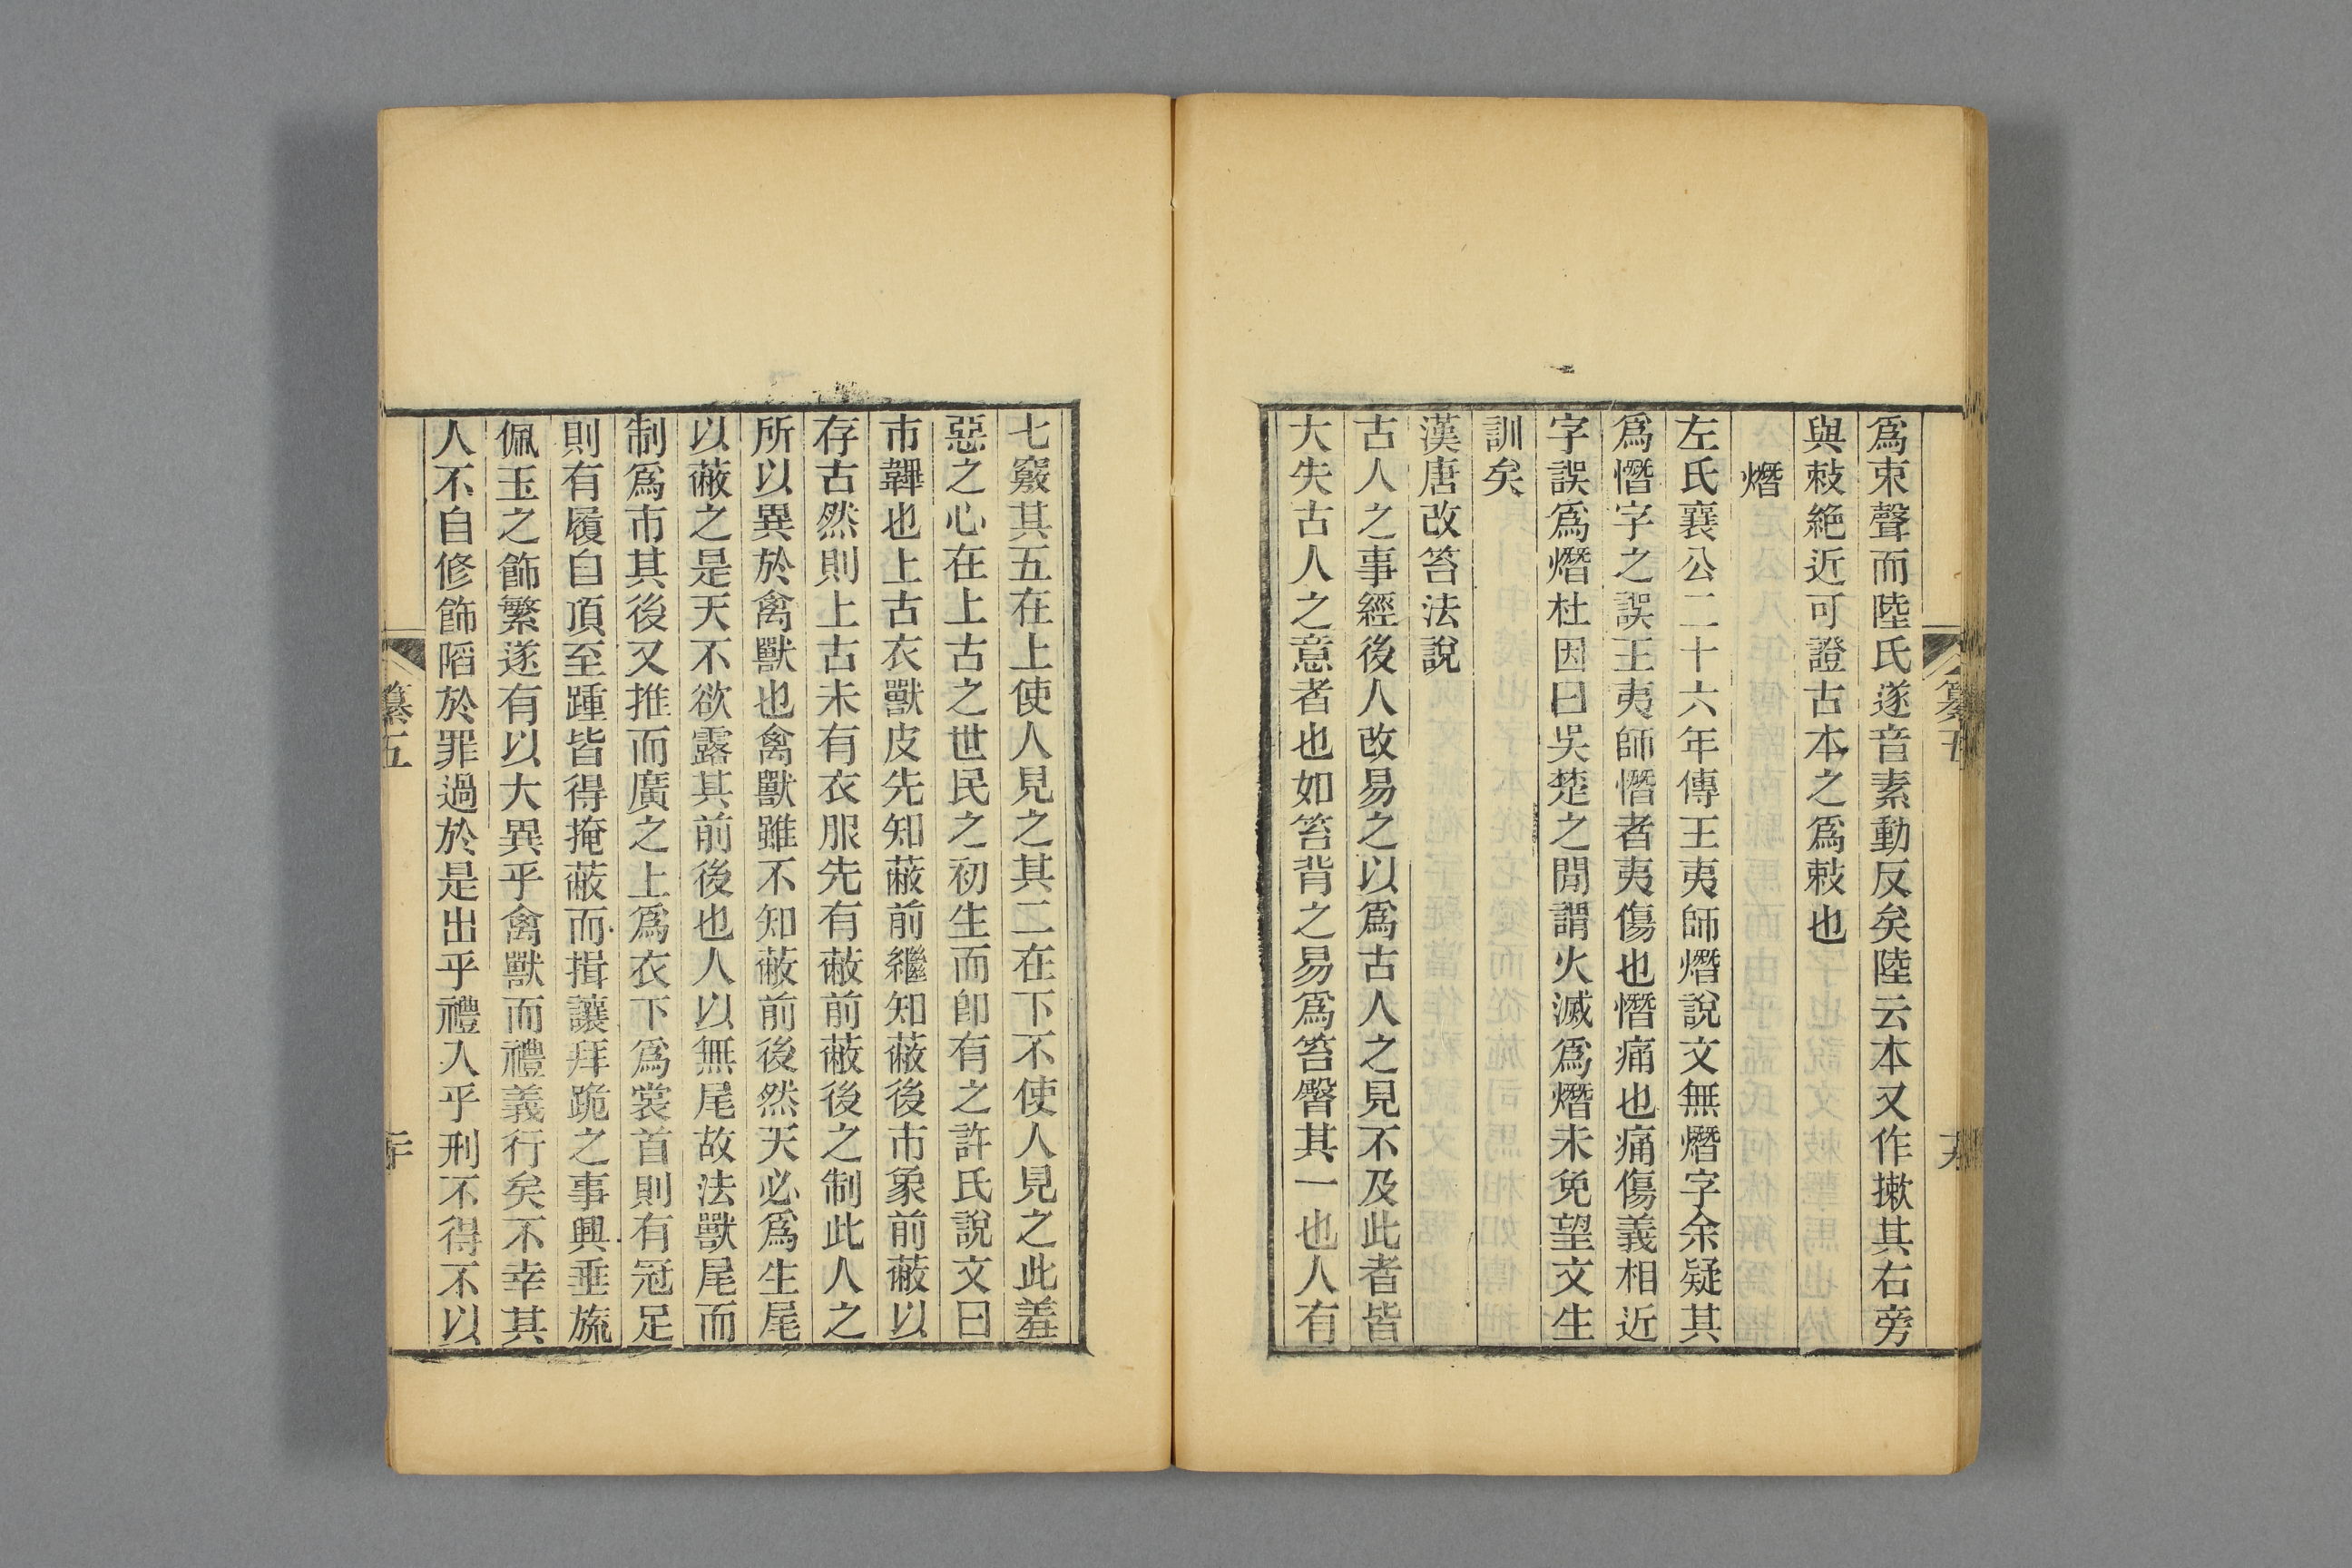 爲朿聲而陸氏遂音素動反矣陸云本又作摗其右旁
與敕絶近可證古本之爲敕也
熸
左氏襄公二十六年傳王夷師熸說文無熸字余疑其
爲憯字之誤王夷師憯者夷傷也憯痛也痛傷義相近
字誤爲熸杜因曰吳楚之閒謂火滅爲熸未免望文生
訓矣
漢唐改笞法說
古人之事經後人改易之以爲古人之見不及此者皆
大失古人之意者也如笞背之易爲笞臀其一也人有
七竅其五在上使人見之其二在下不使人見之此羞
惡之心在上古之世民之初生而卽有之許氏說文曰
巿韠也上古衣獸皮先知蔽前繼知蔽後巿象前蔽以
存古然則上古未有衣服先有蔽前蔽後之制此人之
所以異於禽獸也禽獸雖不知蔽前後然天必爲生尾
以蔽之是天不欲露其前後也人以無尾故法獸尾而
制爲巿其後又推而廣之上爲衣下爲裳首則有冠足
則有履自頂至踵皆得掩蔽而揖讓拜跪之事興垂旒
佩玉之飾繁遂有以大異乎禽獸而禮義行矣不幸其
人不自修飾陷於罪過於是出乎禮入乎刑不得不以
纂五